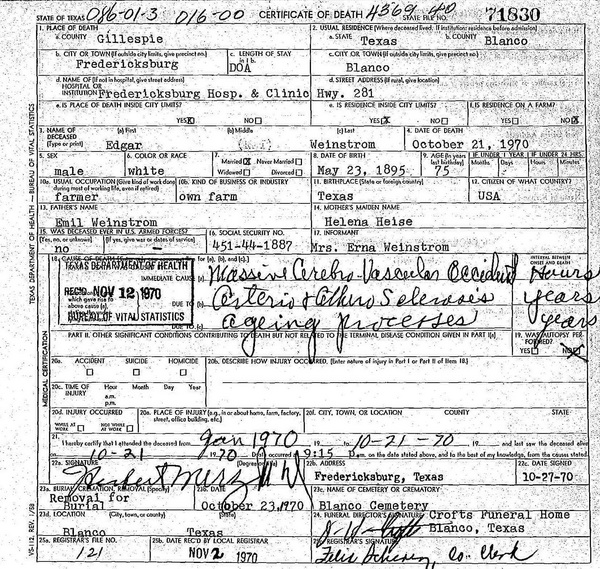 086-01-3 016-00 4369 40
STATE OF TEXAS CERTIFICATE OF DEATH STATE FILE NO. 71830
1. PLACE OF DEATH 2. USUAL RESIDENCE (Where deceased lived. If institution: residence before admission)
a. COUNTY Gillespie a. STATE Texas b. COUNTY Blanco
b. CITY OR TOWN (If outside city limits, give precinct no.) c. LENGTH OF STAY in 1 b. c. CITY OR TOWN (If outside city limits, give precinct no.)
Fredericksburg DOA Blanco
d. NAME OF (If not in hospital, give street address) d. STREET ADDRESS (If rural, give location)
HOSPITAL OR
INSTITUTION Fredericksburg Hosp. & Clinic Hwy. 281
e. IS PLACE OF DEATH INSIDE CITY LIMITS? e. IS RESIDENCE INSIDE CITY LIMITS? f. IS RESIDENCE ON A FARM?
YES X NO YES X NO YES NO
3. NAME OF DECEASED (Type or print) (a) First (b) Middle (c) Last 4. DATE OF DEATH
Edgar Weinstrom October 21, 1970
5. SEX 6. COLOR OR RACE 7. Married X Never Married Widowed Divorced 8. DATE OF BIRTH 9. AGE (In years last birthday) IF UNDER 1 YEAR IF UNDER 24 HRS.
Months Days Hours Min.
male white May 23, 1895 75
10a. USUAL OCCUPATION (Give kind of work done during most of working life, even if retired) 10b. KIND OF BUSINESS OR INDUSTRY 11. BIRTHPLACE (State or foreign country) 12. CITIZEN OF WHAT COUNTRY?
farmer own farm Texas USA
13. FATHER'S NAME 14. MOTHER'S MAIDEN NAME
Emil Weinstrom Helena Heise
15. WAS DECEASED EVER IN U.S. ARMED FORCES? 16. SOCIAL SECURITY NO. 17. INFORMANT
(Yes, no, or unknown) (If yes, give war or dates of service)
no - 451-44-1887 Mrs. Erna Weinstrom
18. CAUSE OF DEATH INTERVAL BETWEEN ONSET AND DEATH
TEXAS DEPARTMENT OF HEALTH
REC'D NOV 12 1970
BUREAU OF VITAL STATISTICS
IMMEDIATE CAUSE (a) Massive Cerebro-Vascular Accident Hours
DUE TO (b) Arterio & Athero Sclerosis years
DUE TO (c) ageing processes years
PART II OTHER SIGNIFICANT CONDITIONS CONTRIBUTING TO DEATH BUT NOT RELATED TO THE TERMINAL DISEASE CONDITION GIVEN IN PART I(a) 19. WAS AUTOPSY PERFORMED?
YES NO X
20a. ACCIDENT SUICIDE HOMICIDE 20b. DESCRIBE HOW INJURY OCCURRED. (Enter nature of injury in Part I or Part II of item 18.)
20c. TIME OF INJURY Hour Month Day Year
a.m.
p.m.
20d. INJURY OCCURRED 20e. PLACE OF INJURY (e.g., in or about home, farm, factory, street, office building, etc.) 20f. CITY, TOWN, OR LOCATION COUNTY STATE
WHILE AT WORK NOT WHILE AT WORK
21. I hereby certify that I attended the deceased from Jan 1970 19 to 10-21-70 19 and last saw the deceased alive
on 10-21 1970 Death occurred at 9:15 m. on the date stated above, and to the best of my knowledge, from the causes stated.
22a. SIGNATURE (Degree or title) 22b. ADDRESS 22c. DATE SIGNED
Fredericksburg, Texas 10-27-70
23a. BURIAL, CREMATION, REMOVAL (Specify) 23b. DATE 23c. NAME OF CEMETERY OR CREMATORY
Removal for Burial October 23, 1970 Blanco Cemetery
23d. LOCATION (City, town, or county) (State) 24. FUNERAL DIRECTOR'S SIGNATURE
Blanco Texas Crofts Funeral Home
Blanco, Texas
25a. REGISTRAR'S FILE NO. 25b. DATE REC'D BY LOCAL REGISTRAR 25c. REGISTRAR'S SIGNATURE
121 NOV 2 1970 Co. Clerk
TEXAS DEPARTMENT OF HEALTH — BUREAU OF VITAL STATISTICS
MEDICAL CERTIFICATION
VS-112, REV. 1/58